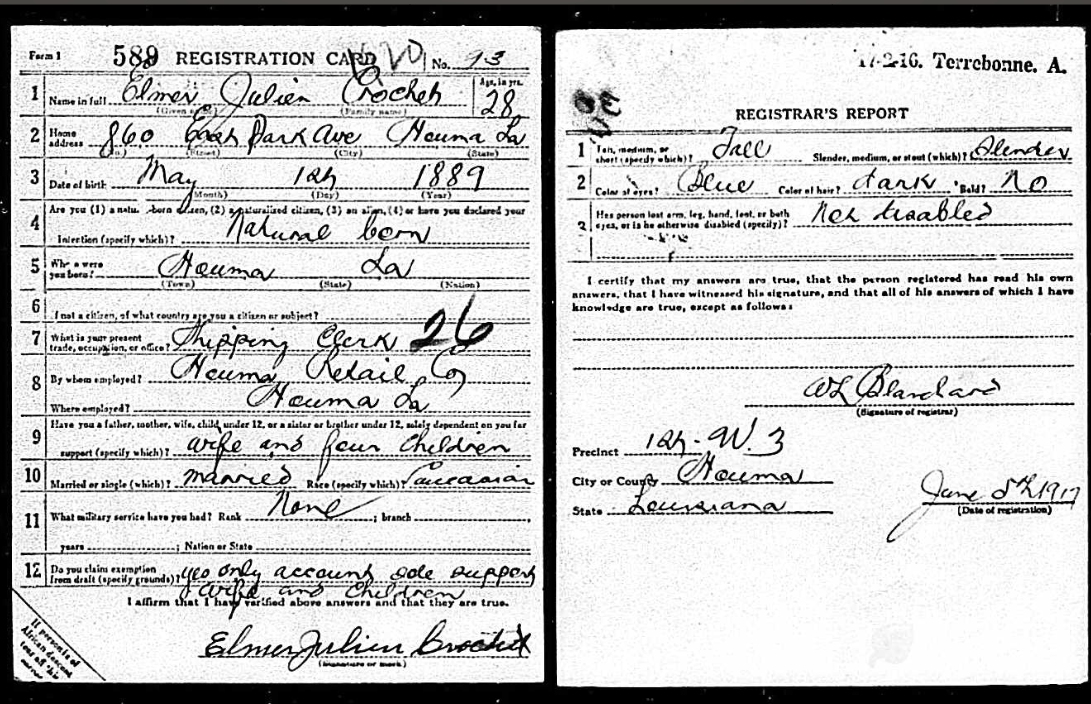 Form 1 589 REGISTRATION CARD No. 93
1 Name in full Elmer Julien Crochet Age, in yrs. 28
(Given name) (Family name)
2 Home address 860 East Park Ave Houma La
(No.) (Street) (City) (State)
3 Date of birth May 12th 1889
(Month) (Day) (Year)
4 Are you (1) a natural-born citizen, (2) a naturalized citizen, (3) an alien, (4) or have you declared your
intention (specify which)? Natural born
5 Where were you born? Houma La
(Town) (State) (Nation)
6 If not a citizen, of what country are you a citizen or subject?
7 What is your present trade, occupation, or office? Shipping Clerk 26
8 By whom employed? Houma Retail Co
Where employed? Houma La
9 Have you a father, mother, wife, child under 12, or a sister or brother under 12, solely dependent on you for
support (specify which)? wife and four children
10 Married or single (which)? married Race (specify which)? Caucasian
11 What military service have you had? Rank None ; branch ,
years ; Nation or State
12 Do you claim exemption from draft (specify grounds)? yes only account sole support
wife and children
I affirm that I have verified above answers and that they are true.
Elmer Julien Crochet
(Signature or mark)
If person is of
African descent
tear off this
corner
17-2-16. Terrebonne. A.
REGISTRAR'S REPORT
1 Tall, medium, or short (specify which)? Tall Slender, medium, or stout (which)? Slender
2 Color of eyes? Blue Color of hair? dark Bald? No
3 Has person lost arm, leg, hand, foot, or both
eyes, or is he otherwise disabled (specify)? Not disabled
I certify that my answers are true, that the person registered has read his own
answers, that I have witnessed his signature, and that all of his answers of which I have
knowledge are true, except as follows:
WL Blanchard
(Signature of registrar)
Precinct W. 3
City or County Houma
State Louisiana
June 5th 1917
(Date of registration)